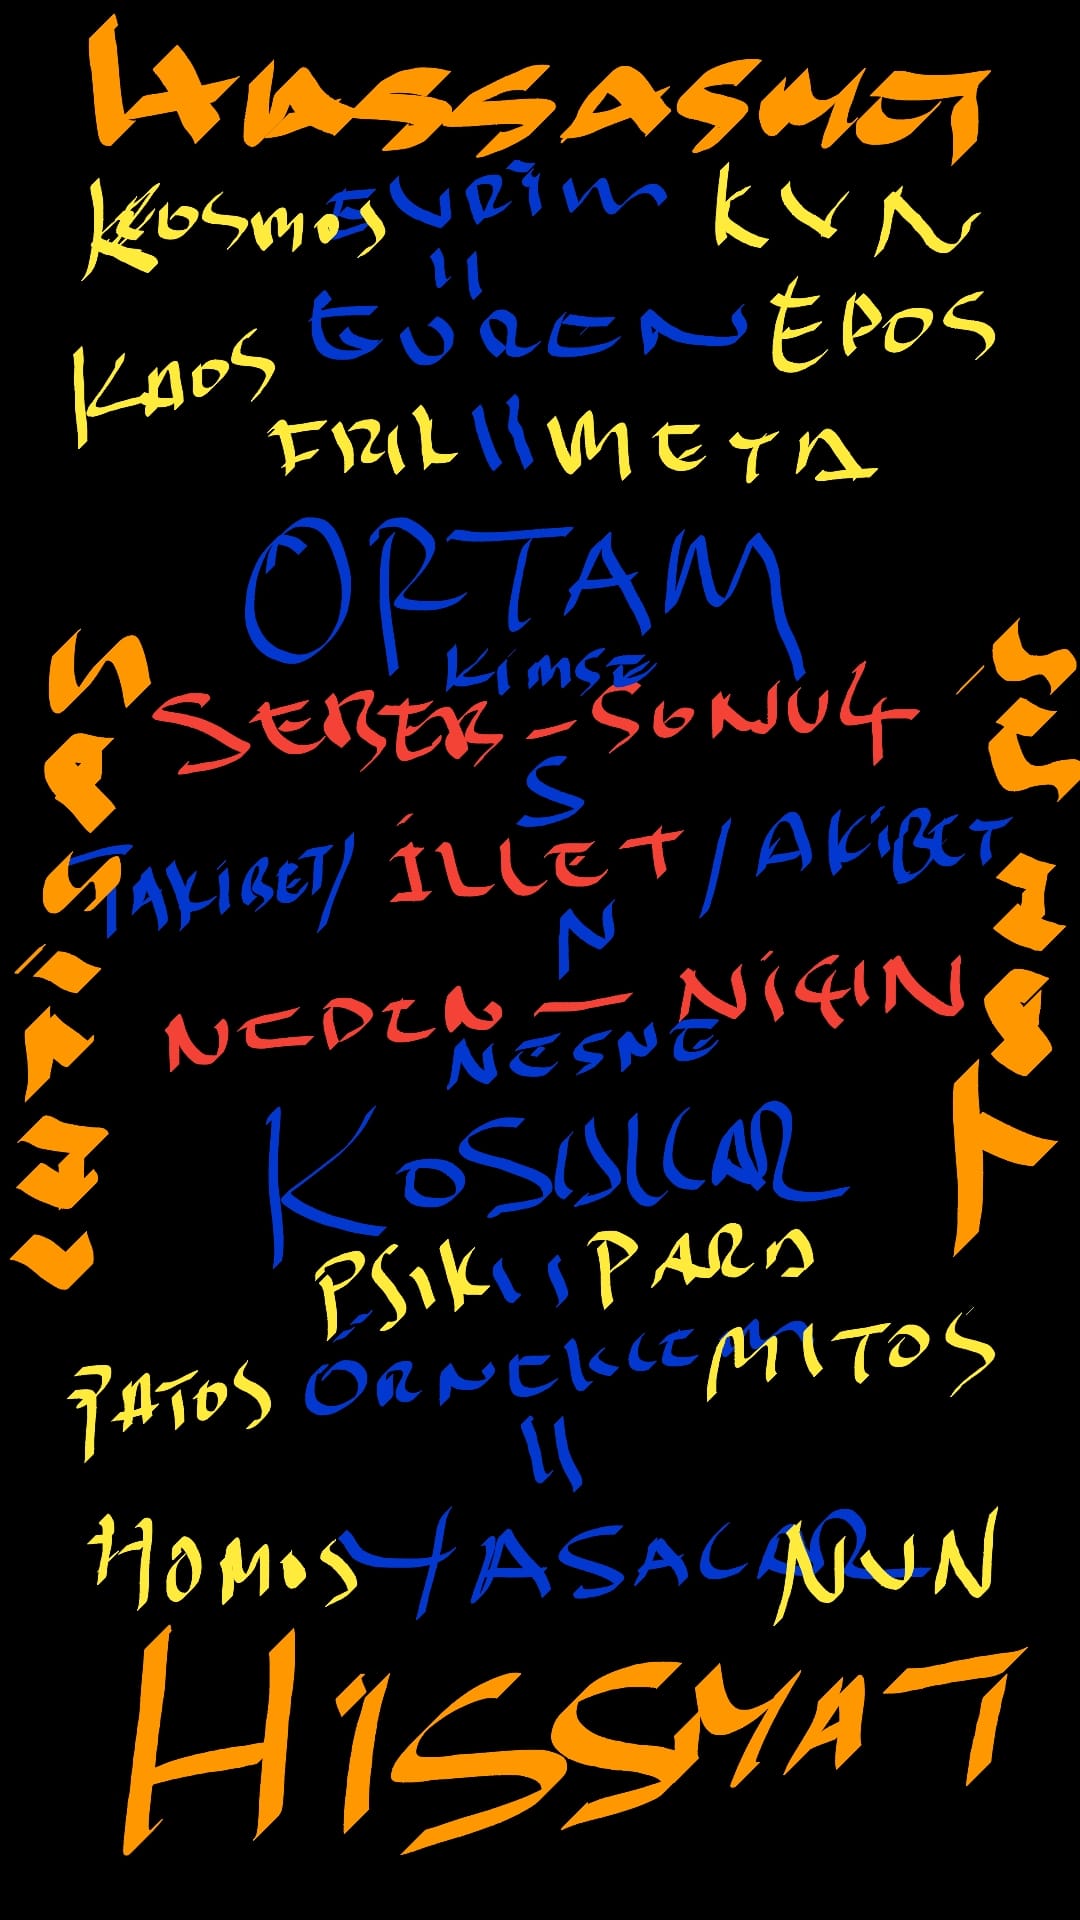 HASSASYET
KOSMOS EVRİM KVN
II
KAOS EVREN EPOS
ERIL II META
ORTAM
KİMSE
SEBEB - SONUÇ
S
TAKİBET / İLLET / AKİBET
N
NEDEN — NİÇIN
NESNE
KOSULLAR
PSIK II PARA
PATOS ÖRNEKLEM MITOS
II
HOMOS YASALAR NUN
HISSYAT